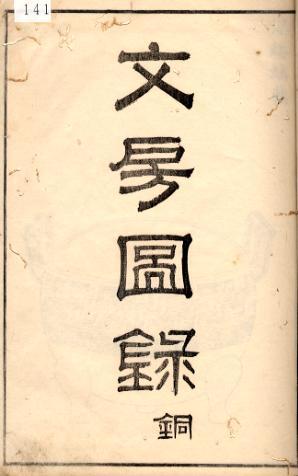 141
文房圖錄
銅